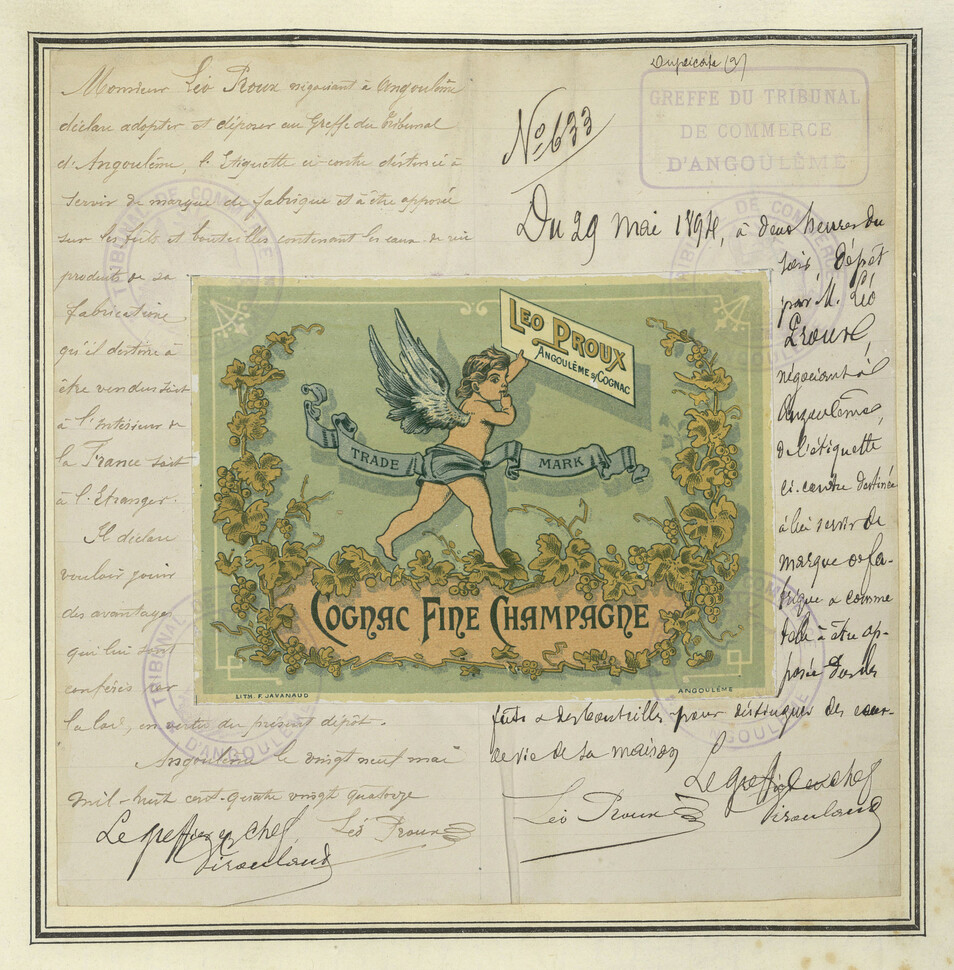 Monsieur Léo Proux négociant à Angoulême
déclare adopter et déposer au Greffe du Tribunal
d'Angoulême, l'Etiquette ci-contre destinée à
servir de marque de fabrique et à être apposée
sur les fûts et bouteilles contenant les eaux-de-vie
produits de sa
fabrication
qu'il destine à
être vendus soit
à l'Intérieur de
la France soit
à l'Etranger.
Il déclare
vouloir jouir
des avantages
qui lui sont
conférés par
la loi, en vertu du présent dépôt.
Angoulême le vingt neuf mai
mil-huit cent-quatre vingt quatorze
Le greffier en chef
Léo Proux
GREFFE DU TRIBUNAL
DE COMMERCE
D'ANGOULÊME
No 633
Du 29 mai 1894, à deux heures du
soir, dépôt
par M. Léo
Proux,
négociant à
Angoulême,
de l'étiquette
ci-contre destinée
à lui servir de
marque de fa-
brique & comme
telle à être ap-
posée sur les
fûts & des bouteilles pour distinguer des eaux-
de vie de sa maison
Le Greffier en chef
Léo Proux
LEO PROUX
ANGOULÊME S/ COGNAC
TRADE MARK
COGNAC FINE CHAMPAGNE
LITH. F. JAVANAUD
ANGOULÊME
TRIBUNAL DE COMMERCE
D'ANGOULÊME